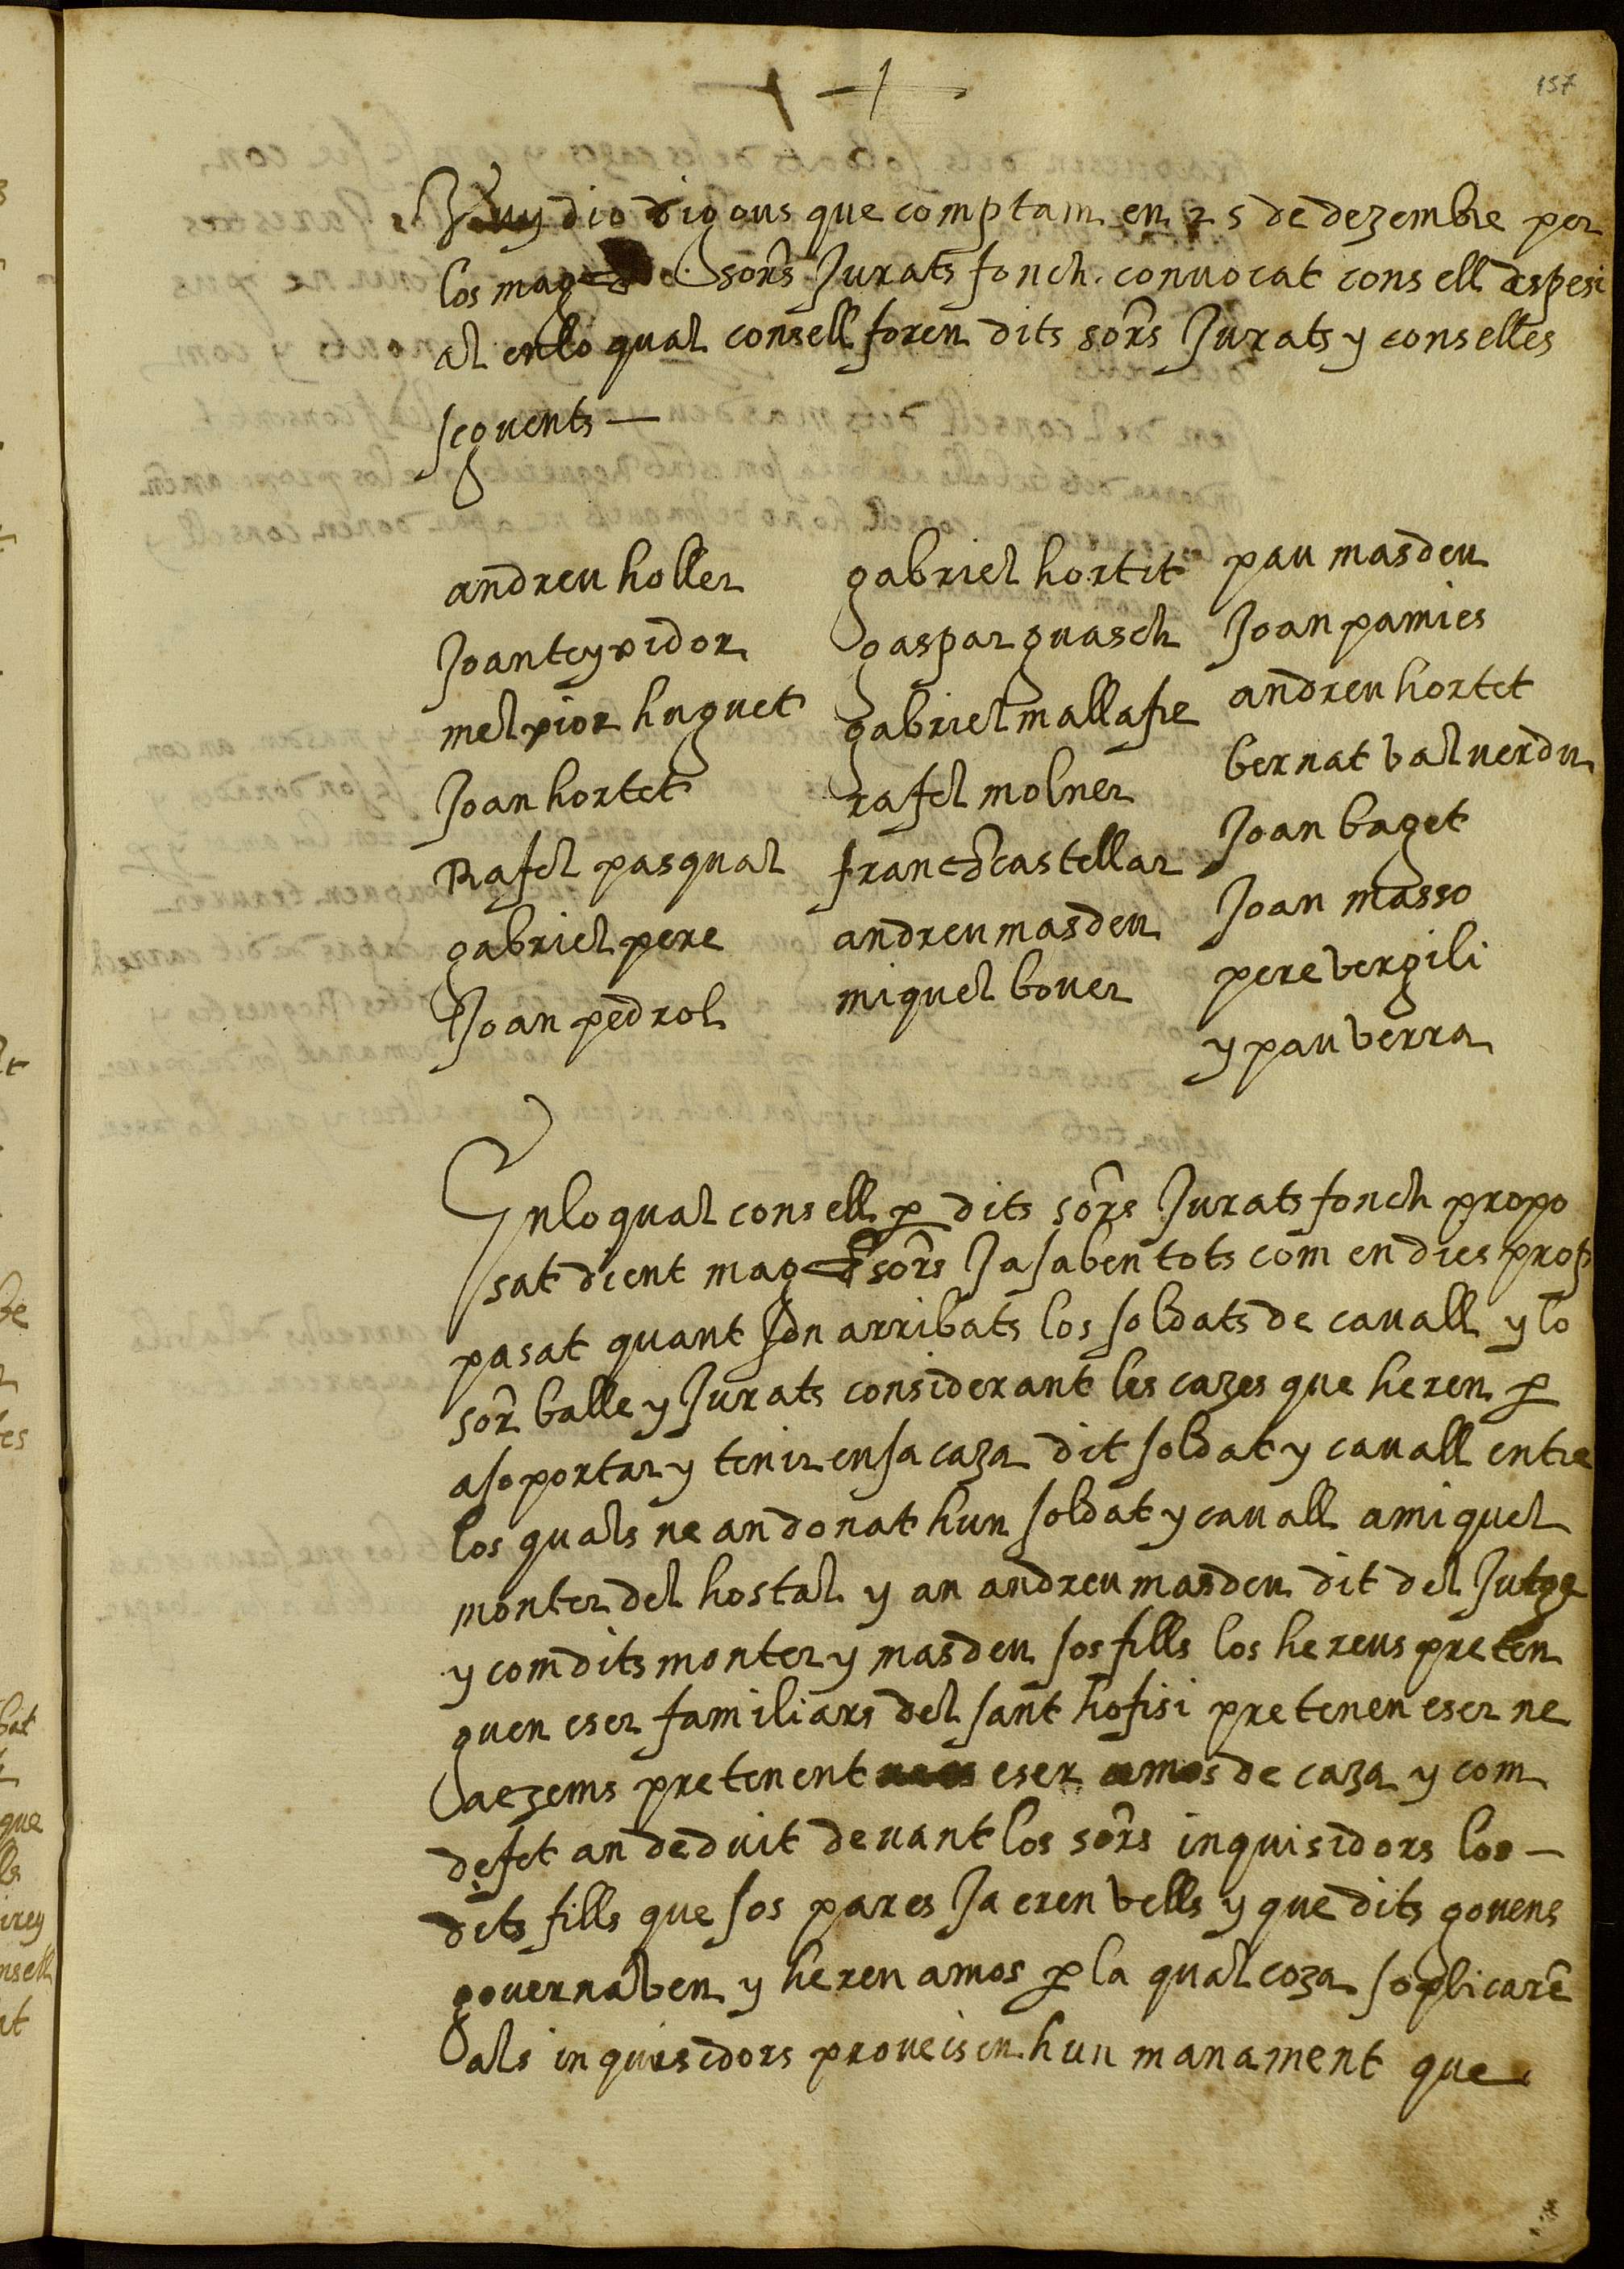 157
Vuy dio digous que comptam en 25 de dezembre per
los mag sors Jurats fonch convocat consell aspesi
al enlo qual consell foren dits sors Jurats y conselles
seguents —
andreu holler
Joan teyxidor
melxior huguet
Joan hortet
Rafel pasqual
gabriel pere
Joan pedrol
gabriel hortet
gaspar guasch
gabriel mallafre
rafel molner
franch castellar
andreu masdeu
miquel bover
pau masdeu
Joan pamies
andreu hortet
bernat balverdu
Joan baget
Joan masso
pere vergili
y pau verra
Enlo qual consell p dits sors Jurats fonch propo
sat dient mag sors Ja saben tots com en dies prop
pasat quant son arribats los soldats de cavall y lo
sor balle y Jurats considerant les cazes que heren p
a soportar y tenir en sa caza dit soldat y cavall entre
los quals ne an donat hun soldat y cavall a miquel
monter del hostal y an andreu masdeu dit del Jutge
y com dits monter y masdeu sos fills los hereus preten
guen eser familiars del sant hofisi pretenen eser ne
aezems pretenent eser amos de caza y com
de fet an deduit devant los sors inquisidors los —
dits fills que sos pares Ja eren vells y que dits govens
governaben y heren amos p la qual coza soplicare
als inquisidors proveisen hun manament que